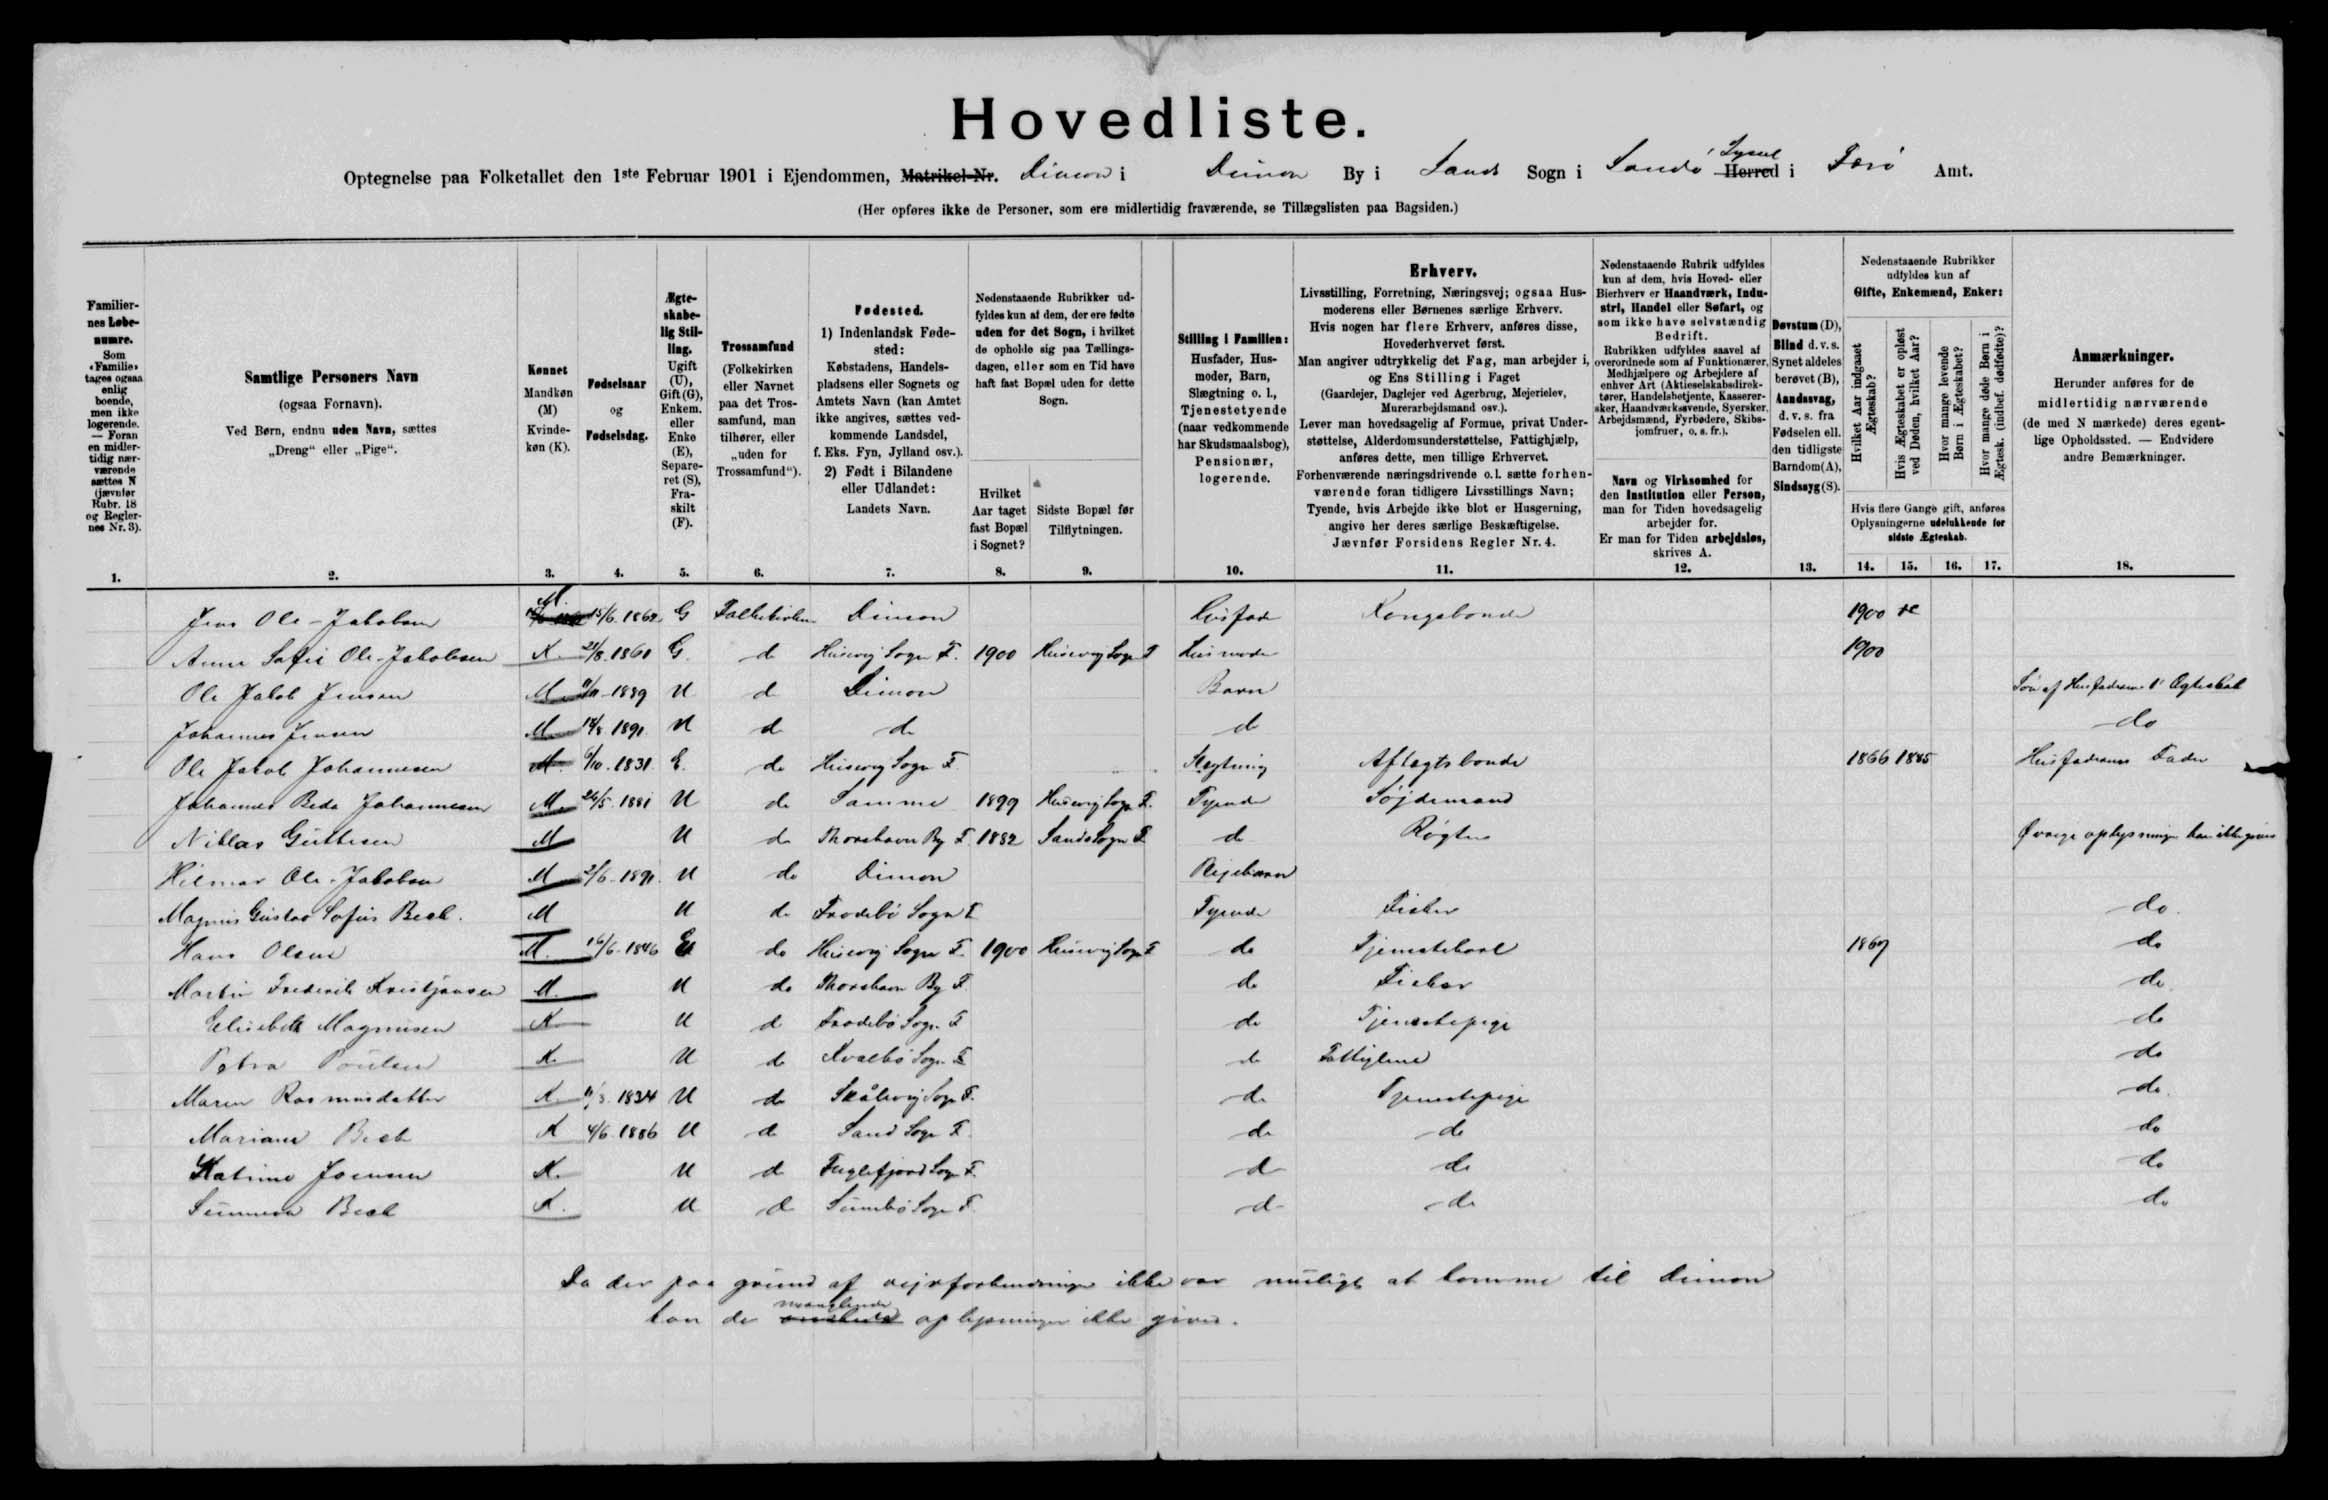 Hovedliste.
Optegnelse paa Folketallet den 1ste Februar 1901 i Ejendommen, Matrikel-Nr. Dimon i Dimon By i Sands Sogn i Sandø Herred Syssel i Færø Amt.
(Her opføres ikke de Personer, som ere midlertidig fraværende, se Tillægslisten paa Bagsiden.)
Familiernes Løbenumre.
Som «Familie» tages ogsaa enlig boende, men ikke logerende. — Foran en midlertidig nærværende sættes N (jævnfør Rubr. 18 og Reglernes Nr. 3).
1.
Samtlige Personers Navn
(ogsaa Fornavn).
Ved Børn, endnu uden Navn, sættes
„Dreng“ eller „Pige“.
2.
Kønnet
Mandkøn (M) Kvindekøn (K).
3.
Fødselsaar
og
Fødselsdag.
4.
Ægteskabelig Stilling.
Ugift (U), Gift (G), Enkem. eller Enke (E), Separeret (S), Fraskilt (F).
5.
Trossamfund
(Folkekirken eller Navnet paa det Trossamfund, man tilhører, eller „uden for Trossamfund“).
6.
Fødested.
1) Indenlandsk Fødested:
Købstadens, Handelspladsens eller Sognets og Amtets Navn (kan Amtet ikke angives, sættes vedkommende Landsdel, f. Eks. Fyn, Jylland osv.).
2) Født i Bilandene eller Udlandet:
Landets Navn.
7.
Nedenstaaende Rubrikker udfyldes kun af dem, der ere fødte uden for det Sogn, i hvilket de opholde sig paa Tællingsdagen, eller som en Tid have haft fast Bopæl uden for dette Sogn.
Hvilket Aar taget fast Bopæl i Sognet?
8.
Sidste Bopæl før Tilflytningen.
9.
Stilling i Familien:
Husfader, Husmoder, Barn, Slægtning o. l., Tjenestetyende (naar vedkommende har Skudsmaalsbog), Pensionær, logerende.
10.
Erhverv.
Livsstilling, Forretning, Næringsvej; ogsaa Husmoderens eller Børnenes særlige Erhverv.
Hvis nogen har flere Erhverv, anføres disse, Hovederhvervet først.
Man angiver udtrykkelig det Fag, man arbejder i, og Ens Stilling i Faget
(Gaardejer, Daglejer ved Agerbrug, Mejerielev, Murerarbejdsmand osv.).
Lever man hovedsagelig af Formue, privat Understøttelse, Alderdomsunderstøttelse, Fattighjælp, anføres dette, men tillige Erhvervet.
Forhenværende næringsdrivende o. l. sætte forhenværende foran tidligere Livsstillings Navn;
Tyende, hvis Arbejde ikke blot er Husgerning, angive her deres særlige Beskæftigelse.
Jævnfør Forsidens Regler Nr. 4.
11.
Nedenstaaende Rubrik udfyldes kun af dem, hvis Hoved- eller Bierhverv er Haandværk, Industri, Handel eller Søfart, og som ikke have selvstændig Bedrift.
Rubrikken udfyldes saavel af overordnede som af Funktionærer, Medhjælpere og Arbejdere af enhver Art (Aktieselskabsdirektører, Handelsbetjente, Kasserersker, Haandværkssvende, Syersker, Arbejdsmænd, Fyrbødere, Skibsjomfruer, o. s. fr.).
Navn og Virksomhed for den Institution eller Person, man for Tiden hovedsagelig arbejder for.
Er man for Tiden arbejdsløs, skrives A.
12.
Døvstum (D), Blind d. v. s. Synet aldeles berøvet (B), Aandssvag, d. v. s. fra Fødselen ell. den tidligste Barndom (A), Sindssyg (S).
13.
Nedenstaaende Rubrikker udfyldes kun af Gifte, Enkemænd, Enker:
Hvilket Aar indgaaet Ægteskab?
Hvis Ægteskabet er opløst ved Døden, hvilket Aar?
Hvor mange levende Børn i Ægteskabet?
Hvor mange døde Børn i Ægtesk. (indbef. dødfødte)?
Hvis flere Gange gift, anføres Oplysningerne udelukkende for sidste Ægteskab.
14. 15. 16. 17.
Anmærkninger.
Herunder anføres for de midlertidig nærværende (de med N mærkede) deres egentlige Opholdssted. — Endvidere andre Bemærkninger.
18.
Jens Ole-Jakobsen M 15/6. 1862 G Folkekirken Dimon Husfader Kongsbonde 1900
Anna Sofie Ole-Jakobsen K. 21/8. 1861 G. do Husevig Sogn F. 1900 Husevig Sogn F Husmoder 1900
Ole Jakob Jensen M 11/11 - 1889 U do Dimon Barn Søn af Husfaderens 1' Ægteskab
Johannes Jensen M 14/8 1891. U do do do do
Ole Jakob Johannesen M. 6/10. 1831. E. do Husevig Sogn F. Slægtning Aftægtsbonde 1866 1885 Husfaderens Fader
Johannes Beda Johannesen M. 26/5. 1881 U do Samme 1899 Husevig Sogn F. Tyende Sløjdemand
Niklas Guttesen M U do Thorshavn By F. 1882 Sands Sogn F. do Røgter Øvrige oplysninger kan ikke gives
Hilmar Ole-Jakobsen M 2/6 - 1891. U do Dimon Plejebarn
Magnus Gustav Sofus Beck. M U do Frodebø Sogn F Tyende Fisker do.
Hans Olsen M. 16/6 - 1846 E do Husevig Sogn F. 1900 Husevig Sogn F do Tjenestekarl 1869 do
Martin Frederik Kristjansen M. U do Thorshavn By F. do Fisker do.
Elisabeth Magnusen K U do Frodebø Sogn F do Tjenestepige do
Petra Poulsen K. U do Kvalbø Sogn F. do Fattiglem do
Maren Rasmusdatter K. 11/8. 1834 U do Skålevig Sogn F. do Tjenestepige do.
Mariane Beck K 4/6. 1886 U do Sand Sogn F. do do do
Katrine Joensen K. U do Fuglefjord Sogn F. do do do
Sunneva Beck K. U do Sumbø Sogn F. do do do
Da der paa grund af vejrforhindringer ikke var muligt at komme til Dimon
kan de manglende oplysninger ikke gives.